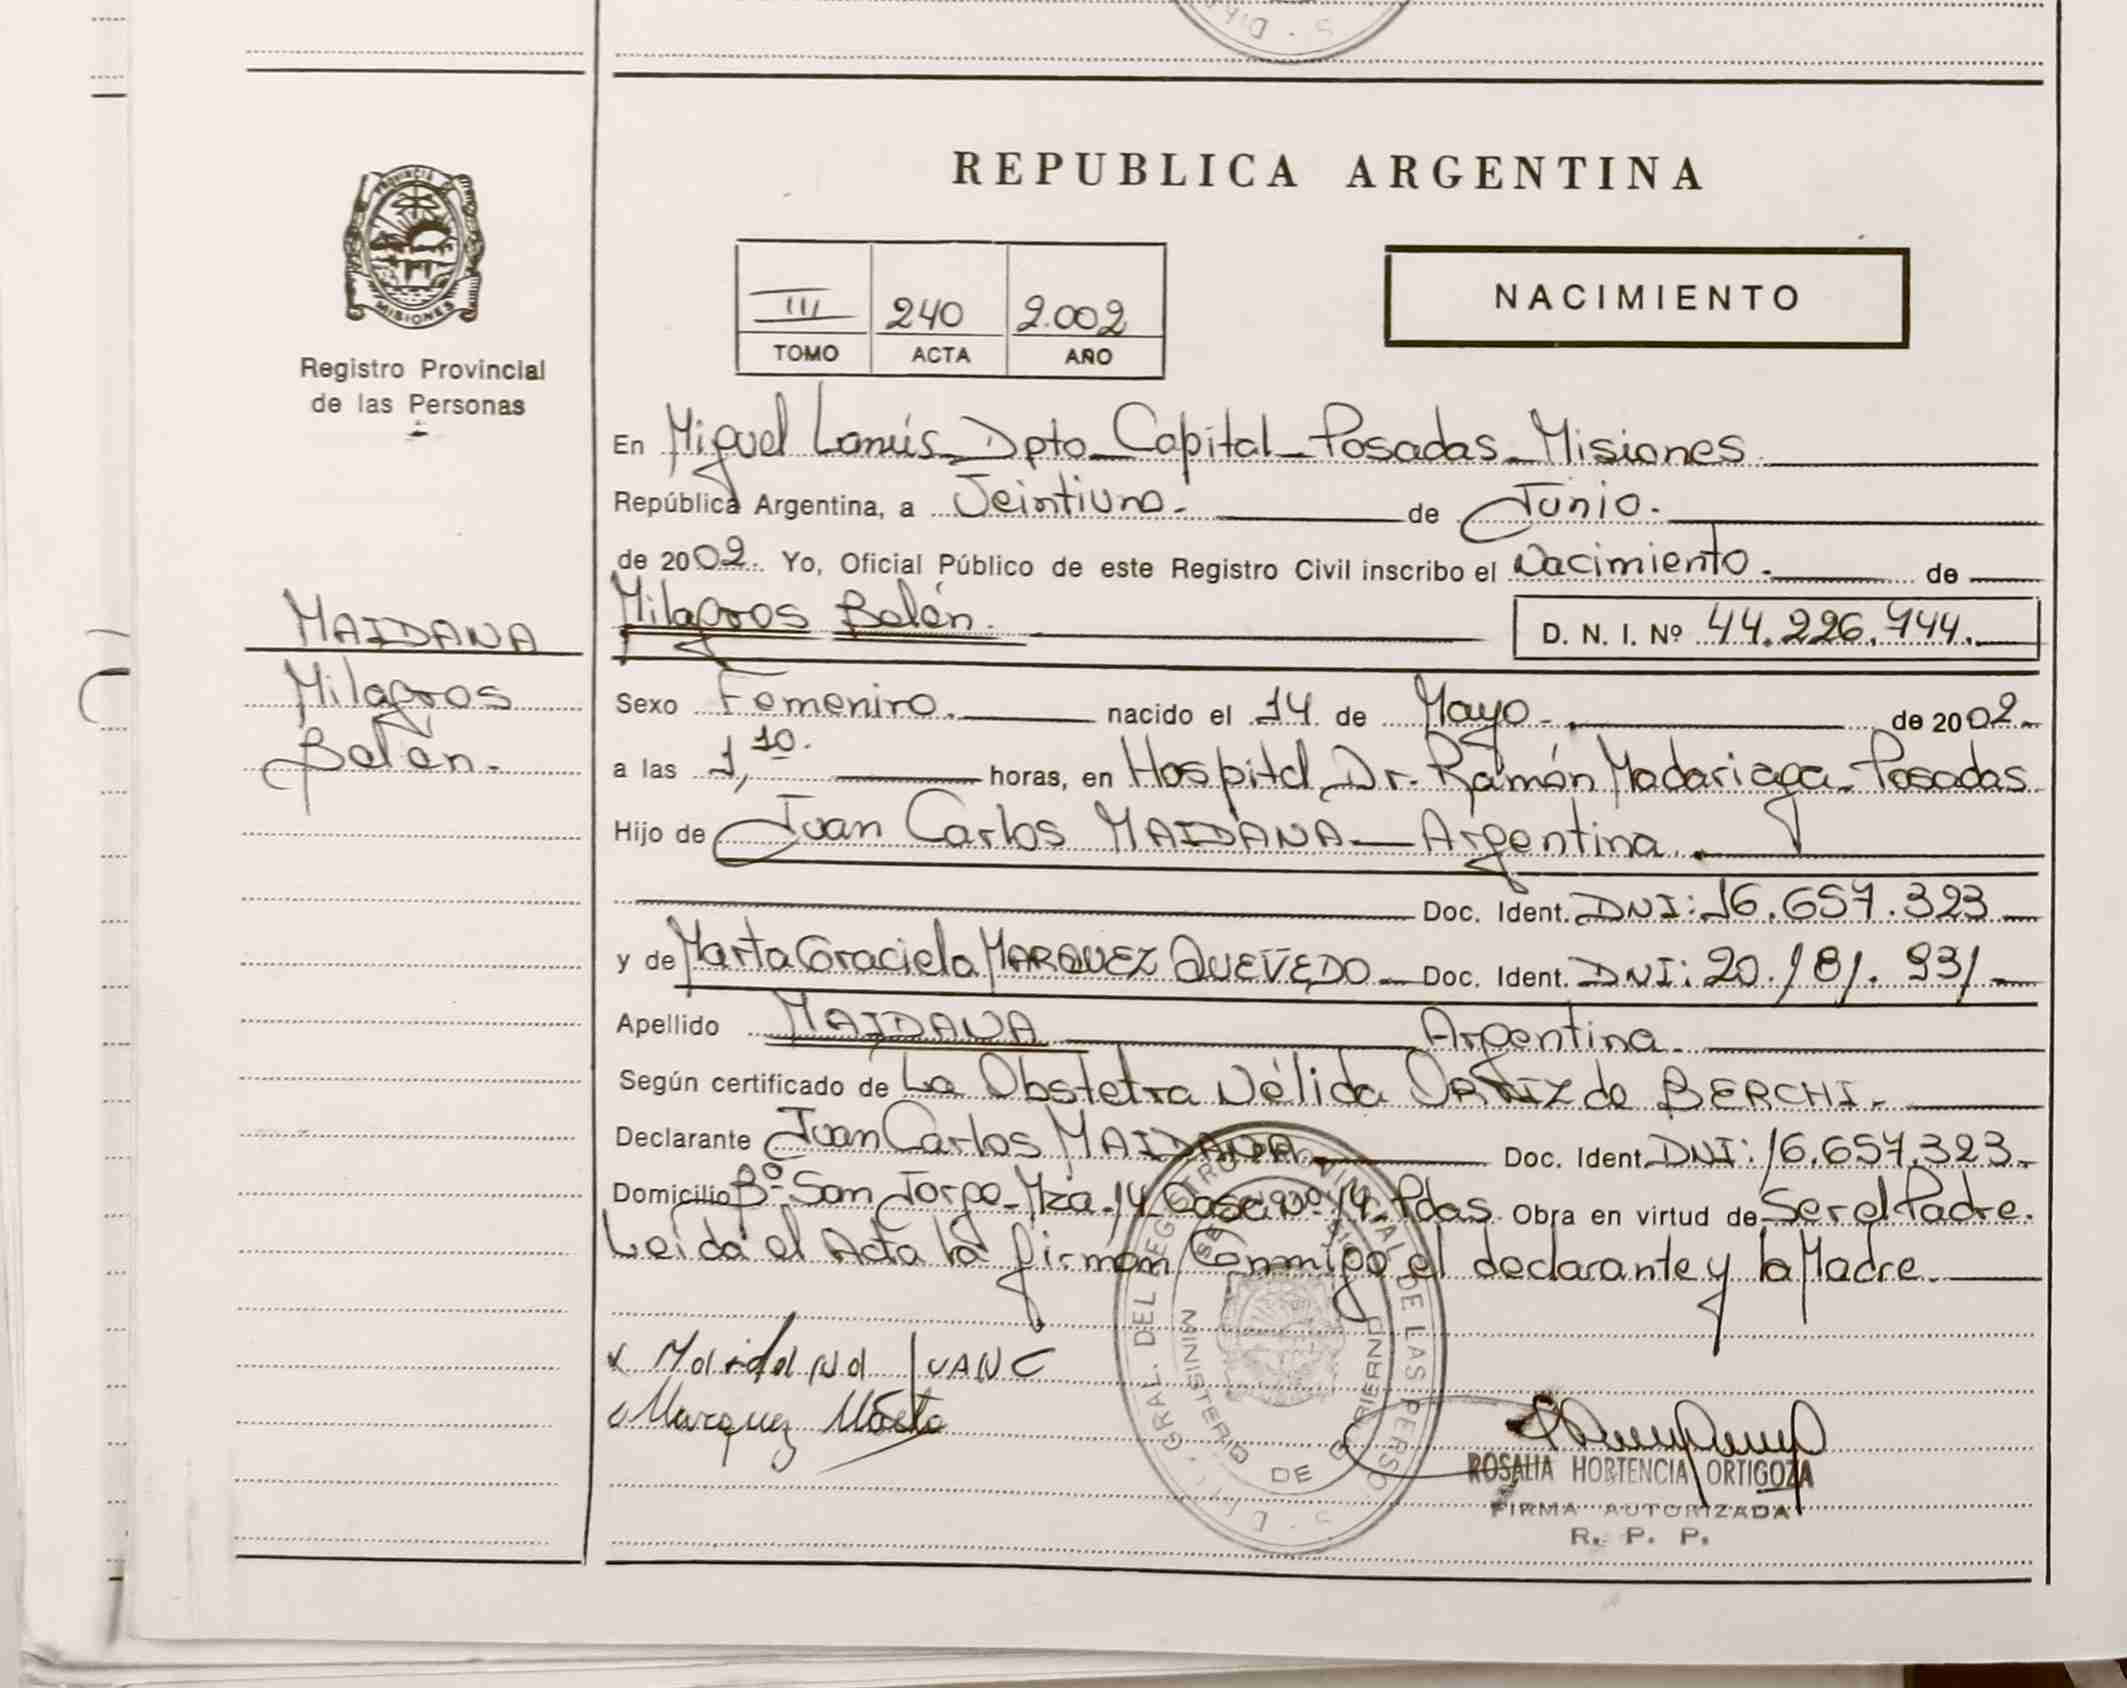 REPUBLICA ARGENTINA
PROVINCIA DE
MISIONES
Registro Provincial
de las Personas
III 240 2.002
TOMO ACTA AÑO
NACIMIENTO
En Miguel Lanús Dpto Capital Posadas Misiones
República Argentina, a Veintiuno. de Junio.
de 2002. Yo, Oficial Público de este Registro Civil inscribo el Nacimiento. de
MAIDANA
Milagros
Belén.
Milagros Belén. D. N. I. Nº 44.226.744.
Sexo Femenino. nacido el 14 de Mayo. de 2002.
a las 1,10. horas, en Hospital Dr. Ramón Madariaga Posadas
Hijo de Juan Carlos MAIDANA Argentina.
Doc. Ident. DNI: 16.657.323
y de Marta Graciela MARQUEZ QUEVEDO Doc. Ident. DNI: 20.181.931
Apellido MAIDANA Argentina.
Según certificado de La Obstetra Nélida de BERCHI.
Declarante Juan Carlos MAIDANA Doc. Ident. DNI: 16.657.323.
Domicilio Bº San Jorge Mza. 14 Casa Nº 14 Pdas. Obra en virtud de Ser el Padre.
Leída el Acta la firman Conmigo el declarante y la Madre.
x Maidana JUAN C
Marquez Marta
DIR. GRAL. DEL REGISTRO PROVINCIAL DE LAS PERSONAS
MINISTERIO DE GOBIERNO
ROSALIA HORTENCIA ORTIGOZA
FIRMA AUTORIZADA
R. P. P.